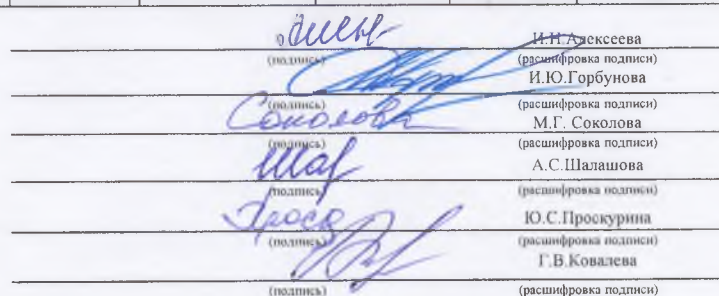 И.Н.Алексеева
(подпись) (расшифровка подписи)
И.Ю.Горбунова
(подпись) (расшифровка подписи)
Соколова М.Г. Соколова
(подпись) (расшифровка подписи)
А.С.Шалашова
(подпись) (расшифровка подписи)
Ю.С.Проскурина
(подпись) (расшифровка подписи)
Г.В.Ковалева
(подпись) (расшифровка подписи)